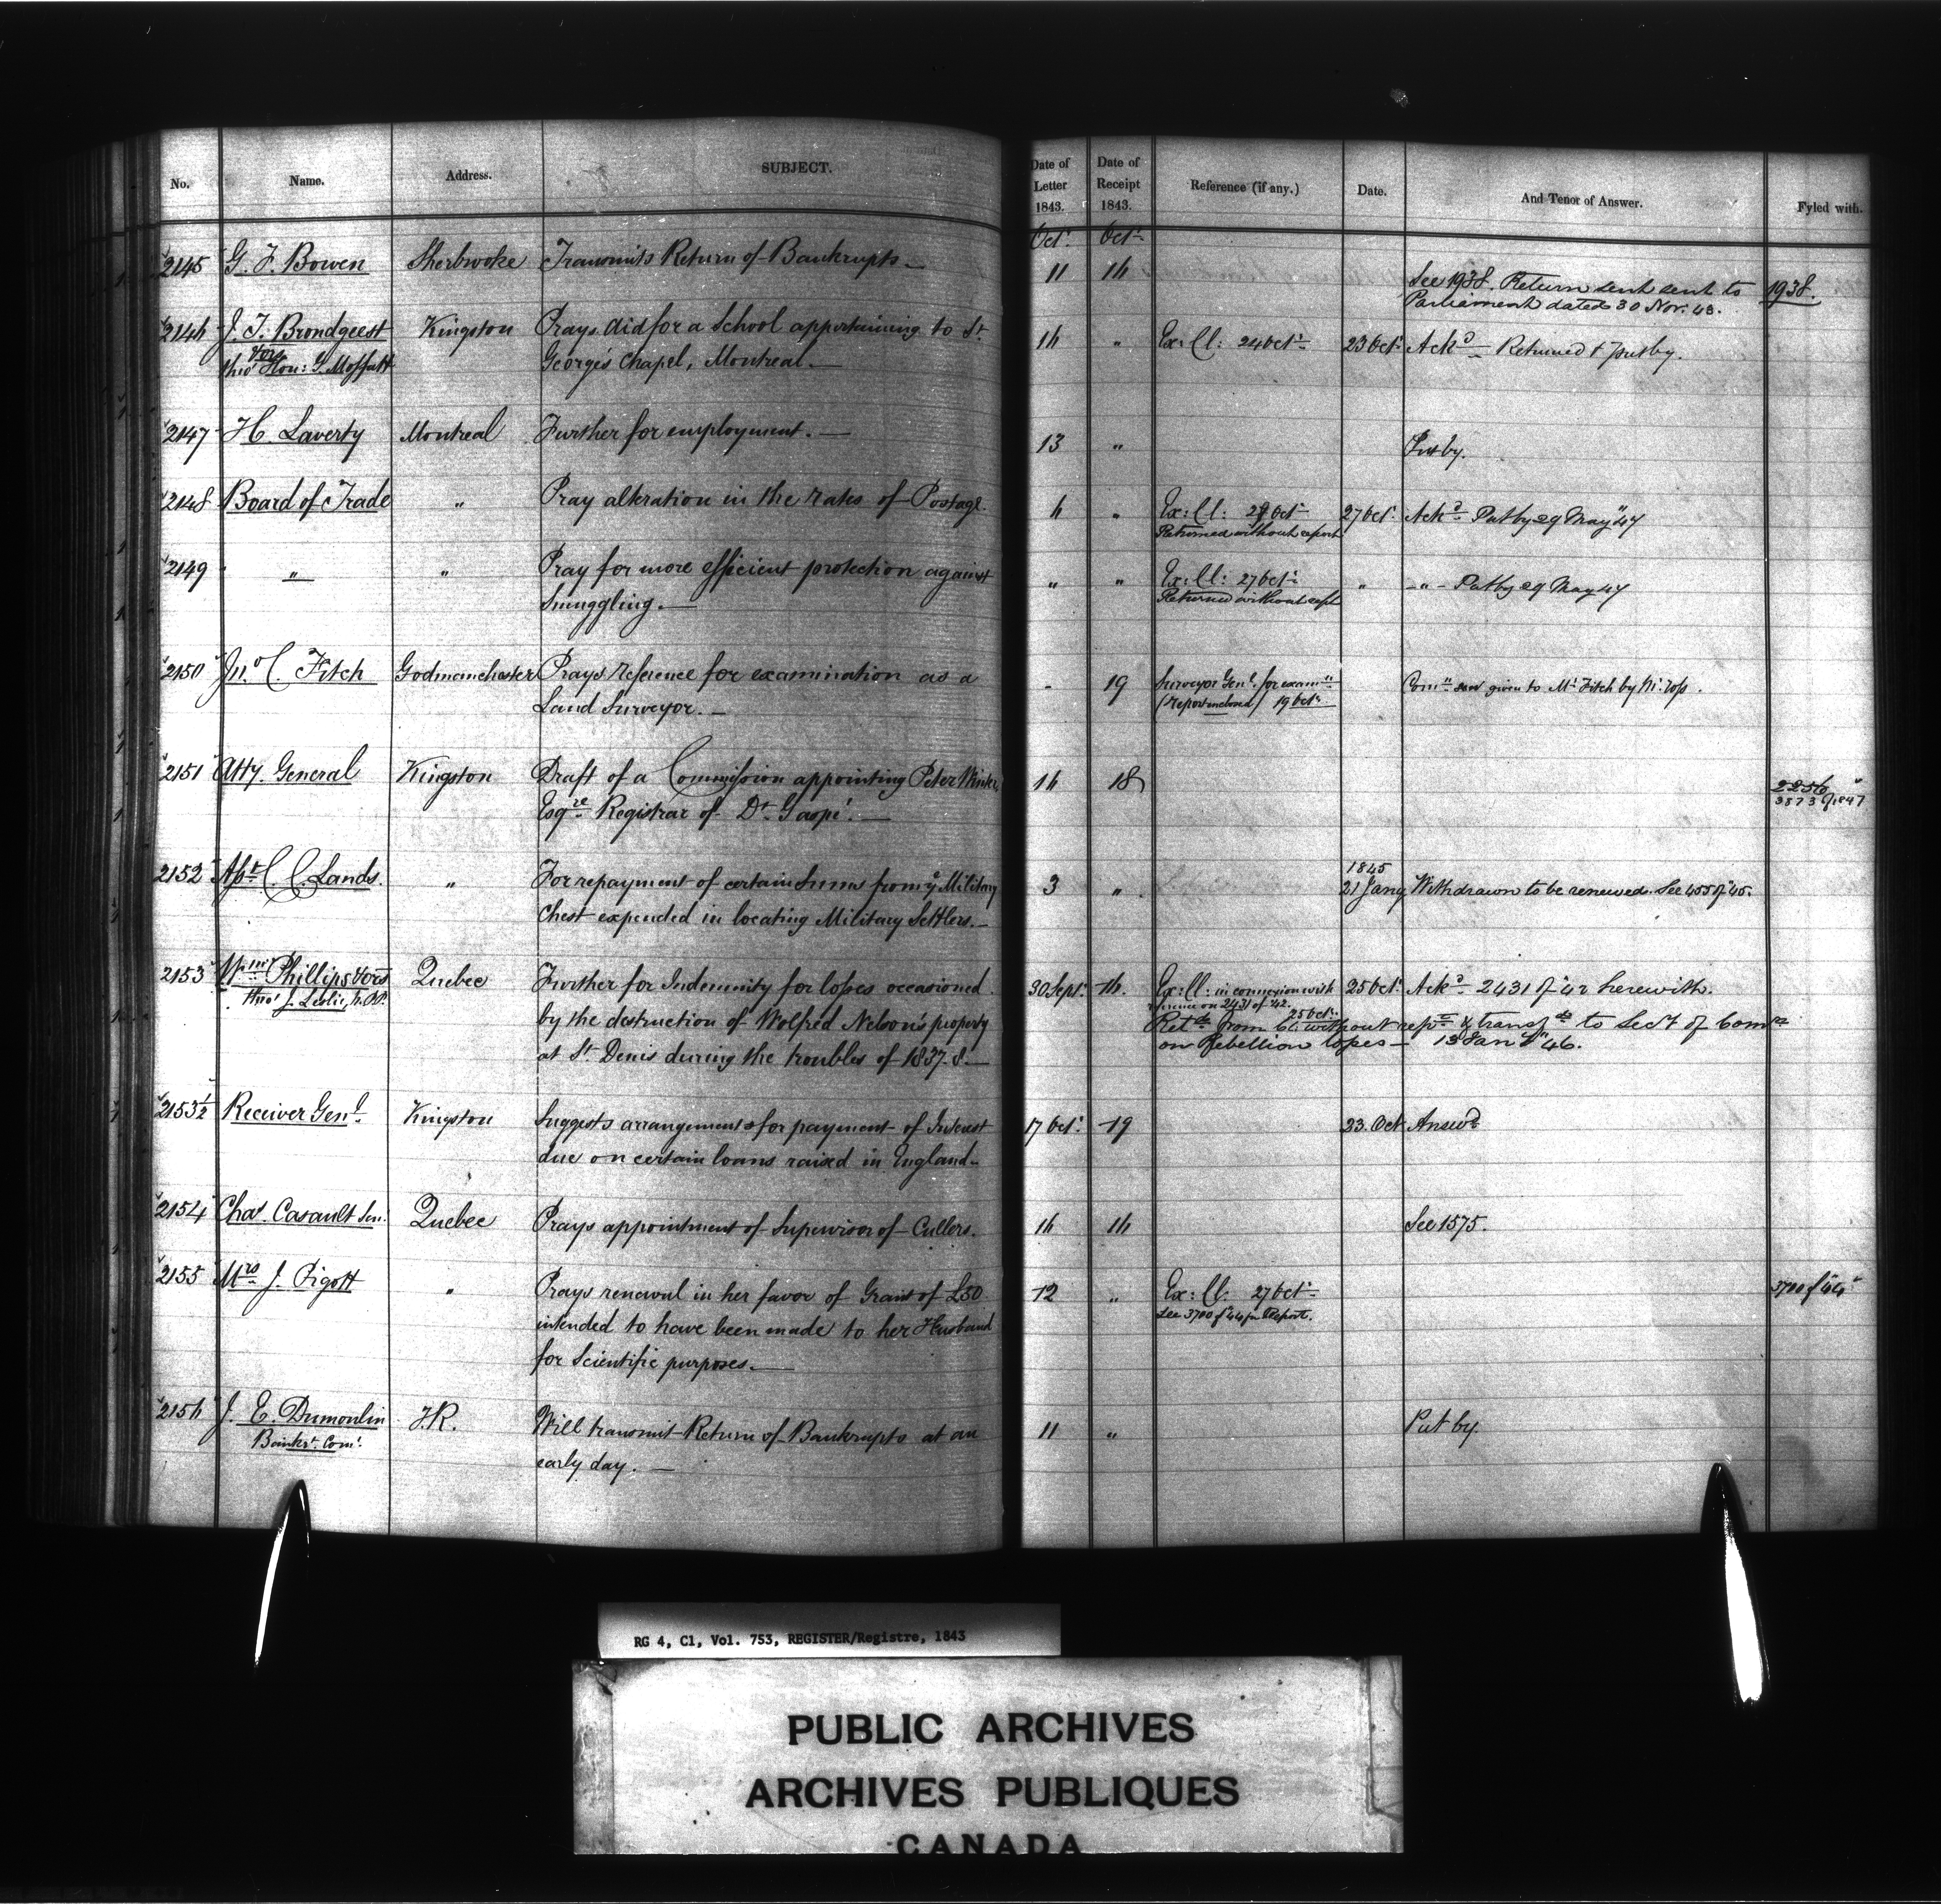 No. Name. Address. SUBJECT. Date of Letter 1843. Date of Receipt 1843. Reference (if any.) Date. And Tenor of Answer. Fyled with.
Oct. Oct.
2145 G. F. Bowen Sherbrooke Transmits Return of Bankrupts — 11 16 See 1938. Return sent sent to 1938.
Parliament dated 30 Nov. 43.
2146 J. T. Brondgeest Kingston Prays aid for a School appertaining to St. 16 " Ex: Cl: 24 Oct. 23 Oct. Ackd. Returned & put by.
& ors
thro' Hon: G. Moffatt George's Chapel, Montreal. —
2147 H. Laverty Montreal Further for employment. — 13 " Put by.
2148 Board of Trade " Pray alteration in the rates of Postage. 6 " Ex: Cl: 27 Oct. 27 Oct. Ackd. Put by 29 May "47
Returned without report
2149 " " Pray for more efficient protection against " " Ex: Cl: 27 Oct. " - " - Put by 29 May 47
Smuggling. — Returned without rept
2150 Jno. C. Fitch Godmanchester Prays reference for examination as a - 19 Surveyor Genl. for examn. Comn. given to Mr. Fitch by Mr.
Land Surveyor. — (report enclosed) 19 Oct.
2151 Atty. General Kingston Draft of a Commission appointing Peter Winter, 16 18 2256
Esqre. Registrar of Dt. Gaspé. — 3873 of 1847
1845
2152 Asst. C. C. Lands. " For repayment of certain Sums from ye Military 3 " 21 Jany Withdrawn to be renewed. See 455 of "45.
Chest expended in locating Military Settlers. —
2153 Wm. Phillips & ors Quebec Further for Indemnity for losses occasioned 30 Sept. 16. Ex: Cl: in connexion with 25 Oct. Ackd. 2431 of "42 herewith.
thro' J. Leslie, M.P.P. reference on 2431 of '42. 25 Oct.
by the destruction of Wolfred Nelson's property Retd. from Cl. without rept. & transfd. to Sect. of Comrs.
at St. Denis during the troubles of 1837.8. — on Rebellion losses — 13 Jany "46.
2153½ Receiver Genl. Kingston Suggests arrangements for payment of Interest 17 Oct. 19 23. Oct Answd.
due on certain loans raised in England —
2154 Chas. Casault Sen. Quebec Prays appointment of Supervisor of Cullers. 16 16 See 1575.
2155 Mrs. J. Pigott " Prays renewal in her favor of Grant of £50 12 " Ex: Cl: 27 Oct. 3700 of "44
See 3700 of "44 for Report.
intended to have been made to her Husband
for Scientific purposes. —
2156 J. E. Dumoulin T.R. Will transmit Return of Bankrupts at an 11 " Put by.
Bankt. Comr. early day. —
RG 4, C1, Vol. 753, REGISTER/Registre, 1843
PUBLIC ARCHIVES
ARCHIVES PUBLIQUES
CANADA